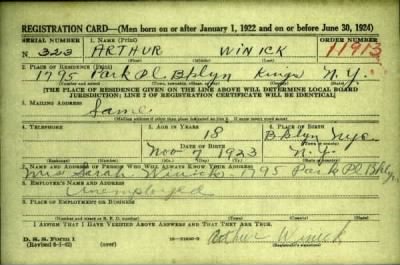 REGISTRATION CARD—(Men born on or after January 1, 1922 and on or before June 30, 1924)
SERIAL NUMBER 1. NAME (Print) ORDER NUMBER
N 323 ARTHUR WINICK 11913
(First) (Middle) (Last)
2. PLACE OF RESIDENCE (Print)
1795 Park Pl. Bklyn Kings N.Y.
(Number and street) (Town, township, village, or city) (County) (State)
[THE PLACE OF RESIDENCE GIVEN ON THE LINE ABOVE WILL DETERMINE LOCAL BOARD
JURISDICTION; LINE 2 OF REGISTRATION CERTIFICATE WILL BE IDENTICAL]
3. MAILING ADDRESS
Same
(Mailing address if other than place indicated on line 2. If same insert word same)
4. TELEPHONE 5. AGE IN YEARS 6. PLACE OF BIRTH
18 Bklyn NYC
DATE OF BIRTH
Nov 7 1923 N.Y.
(Exchange) (Number) (Mo.) (Day) (Yr.) (State or country)
7. NAME AND ADDRESS OF PERSON WHO WILL ALWAYS KNOW YOUR ADDRESS
Mrs Sarah Winick 1795 Park Pl Bklyn
8. EMPLOYER'S NAME AND ADDRESS
Unemployed
9. PLACE OF EMPLOYMENT OR BUSINESS
(Number and street or R. F. D. number) (Town) (County) (State)
I AFFIRM THAT I HAVE VERIFIED ABOVE ANSWERS AND THAT THEY ARE TRUE.
D. S. S. Form 1
(Revised 6-9-42) (over)
Arthur Winick
(Registrant's signature)